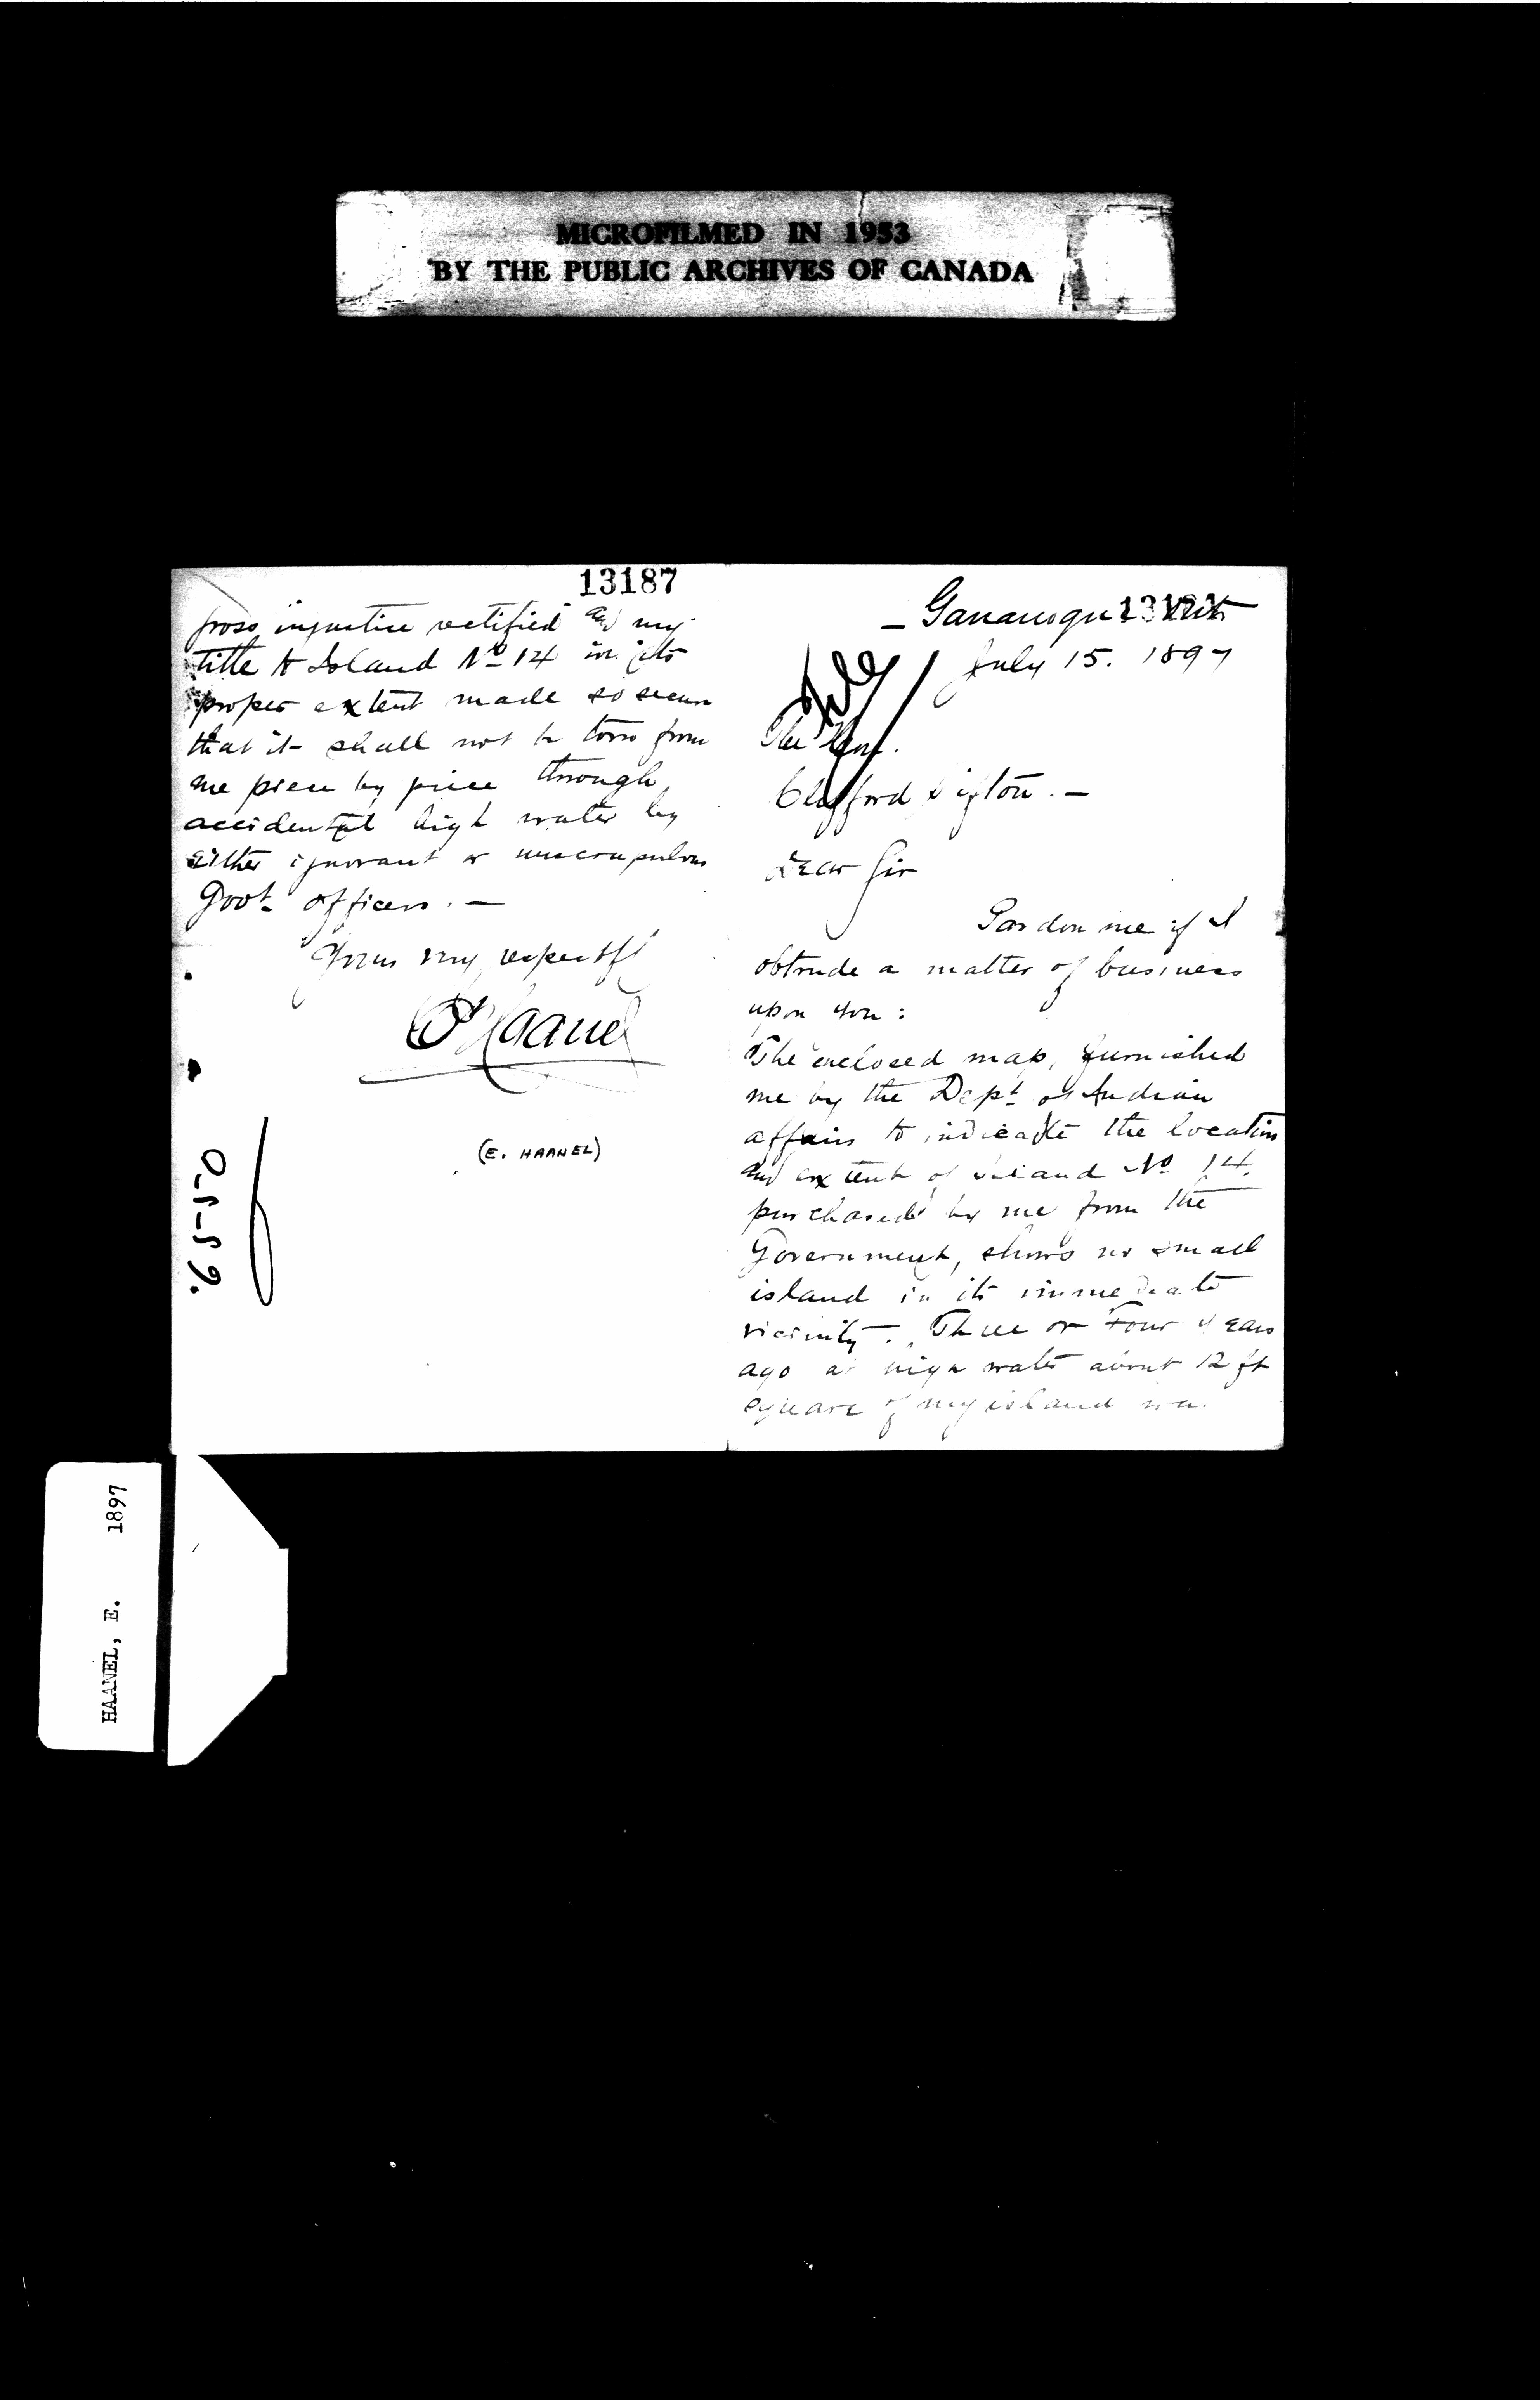 MICROFILMED IN 1953
BY THE PUBLIC ARCHIVES OF CANADA
13187
gross injustice rectified and my
title to Island No 14 in its
proper extent made so secure
that it shall not be torn from
me piece by piece through
accidental high water by
either ignorant or unscrupulous
Govt officers. —
Yours very respectfl
E Haanel
(E. HAANEL)
— Gananoque Ont
July 15. 1897
File
The Hon.
Clifford Sifton. —
Dear Sir
Pardon me if I
obtrude a matter of business
upon you:
The enclosed map, furnished
me by the Dept of Indian
affairs to indicate the location
and extent of Island No 14.
purchased by me from the
Government, shows no small
island in its immediate
vicinity. Three or Four years
ago at high water about 12 ft
square of my island was
HAANEL, E. 1897